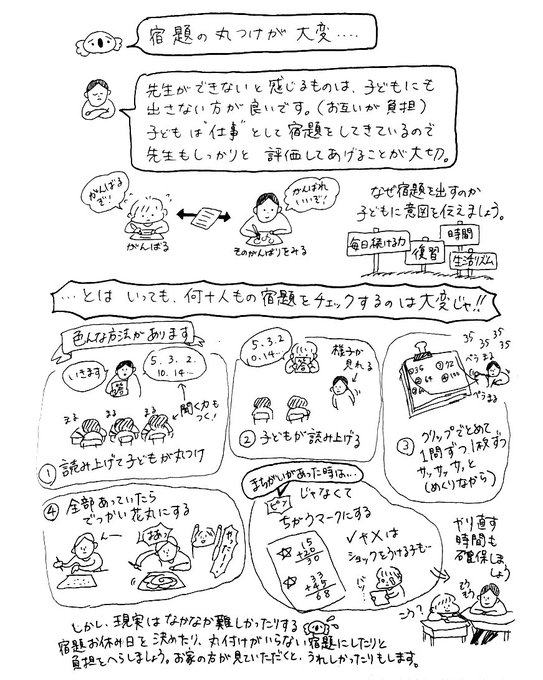 宿題の丸つけが 大変‥‥
先生ができないと感じるものは、子どもにも
出さない方が良いです。(お互いが負担)
子どもは"仕事"として宿題をしてきているので
先生もしっかりと 評価してあげることが大切。
がんばる
ぞ!
がんばれ
いいぞ!
がんばる
そのがんばりをみる
なぜ宿題を出すのか
子どもに意図を伝えましょう。
毎日続ける力
復習
時間
生活リズム
…とは いっても、何十人もの宿題をチェックするのは大変じゃ!!
色んな方法があります
いきます
5.3.2.
10.14…
答
まる まる まる
聞く力も
つく!
① 読み上げて子どもが丸つけ
5.3.2
10.14…
答
様子が
見れる
② 子どもが読み上げる
35 35 35 35
①36
②64
③72
④100
ぺらまる
ぺらまる
③ クリップでとめて
1問ずつ1枚ずつ
サッサッサッと
(めくりながら)
④ 全部あっていたら
でっかい花丸にする
ん〜
おおっ
やったー!
まちがいがあった時は…
ピン
じゃなくて
ちがうマークにする
15
+20
30
33
+45
68
✓や×は
ショックをうける子も…
やり直す
時間も
確保しま
しょう
こう?
そう
そう
しかし、現実は なかなか難しかったりする
宿題お休み日を決めたり、丸付けがいらない宿題にしたりと
負担をへらしましょう。お家の方が見ていただくと、うれしかったりもします。